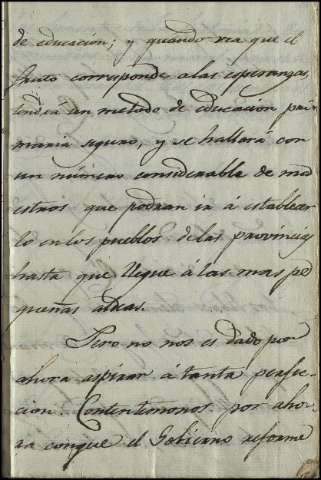 de educacion; y quando vea que el
fruto corresponde a las esperanzas,
tendrá un metodo de educacion pri
maria seguro, y se hallará con
un número considerable de ma
estros que podran ir á establecer
lo en los pueblos de las provincias
hasta que llegue á las mas pe
queñas aldeas.
Pero no nos es dado por
ahora aspirar á tanta perfec
cion. Contentemonos por aho
ra conque el Gobierno reforme